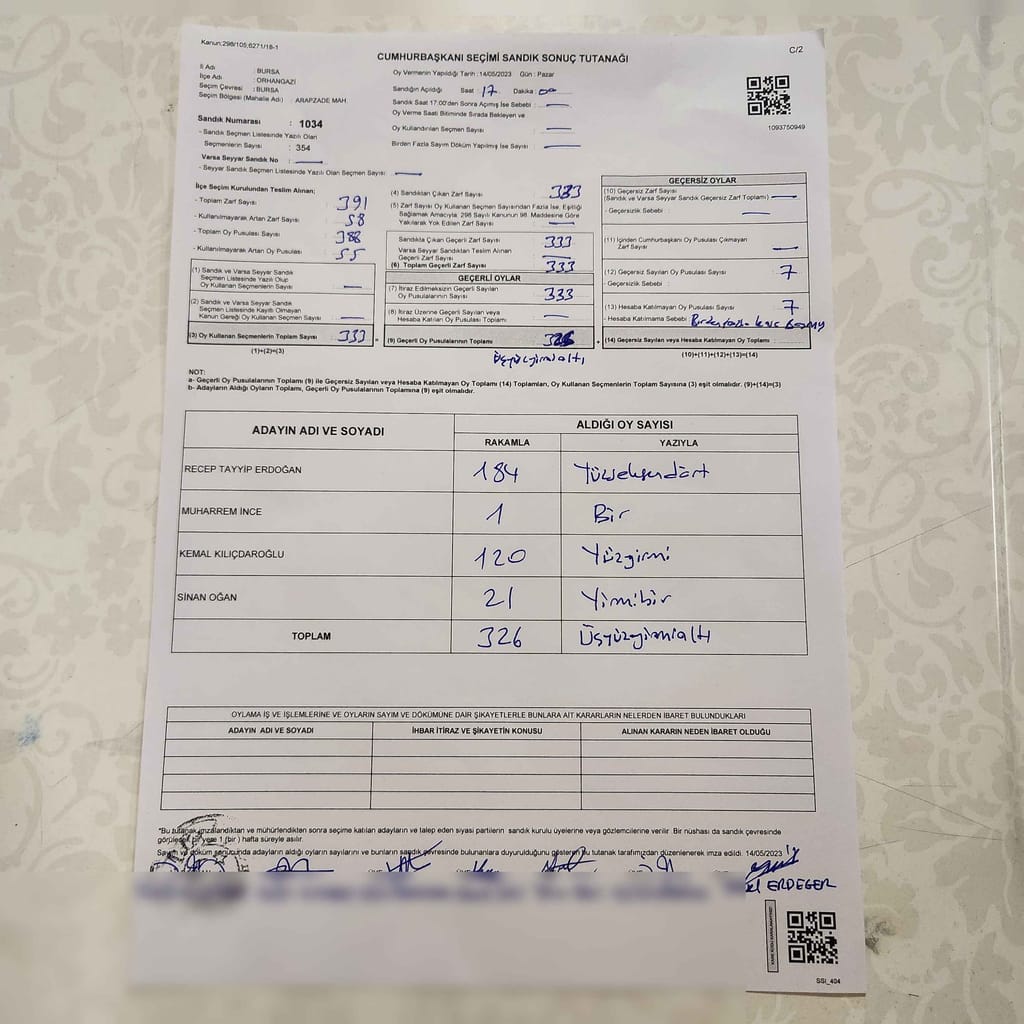 Kanun:298/105;6271/18-1
C/2
CUMHURBAŞKANI SEÇİMİ SANDIK SONUÇ TUTANAĞI
İl Adı : BURSA
İlçe Adı : ORHANGAZİ
Seçim Çevresi : BURSA
Seçim Bölgesi (Mahalle Adı) : ARAPZADE MAH.
Sandık Numarası : 1034
- Sandık Seçmen Listesinde Yazılı Olan
Seçmenlerin Sayısı : 354
Varsa Seyyar Sandık No :
- Seyyar Sandık Seçmen Listesinde Yazılı Olan Seçmen Sayısı :
Oy Vermenin Yapıldığı Tarih :14/05/2023 Gün : Pazar
Sandığın Açıldığı Saat : 17 Dakika : 00
Sandık Saat 17:00'den Sonra Açılmış İse Sebebi :
Oy Verme Saati Bitiminde Sırada Bekleyen ve
Oy Kullandırılan Seçmen Sayısı :
Birden Fazla Sayım Döküm Yapılmış İse Sayısı :
1093750949
İlçe Seçim Kurulundan Teslim Alınan;
- Toplam Zarf Sayısı : 391
- Kullanılmayarak Artan Zarf Sayısı : 58
- Toplam Oy Pusulası Sayısı : 388
- Kullanılmayarak Artan Oy Pusulası : 55
(1) Sandık ve Varsa Seyyar Sandık
Seçmen Listesinde Yazılı Olup
Oy Kullanan Seçmenlerin Sayısı :
(2) Sandık ve Varsa Seyyar Sandık
Seçmen Listesinde Kayıtlı Olmayan
Kanun Gereği Oy Kullanan Seçmen Sayısı :
(3) Oy Kullanan Seçmenlerin Toplam Sayısı : 333
(1)+(2)=(3)
(4) Sandıktan Çıkan Zarf Sayısı : 333
(5) Zarf Sayısı Oy Kullanan Seçmen Sayısından Fazla İse, Eşitliği
Sağlamak Amacıyla 298 Sayılı Kanunun 98. Maddesine Göre
Yakılarak Yok Edilen Zarf Sayısı :
Sandıkta Çıkan Geçerli Zarf Sayısı : 333
Varsa Seyyar Sandıktan Teslim Alınan
Geçerli Zarf Sayısı :
(6) Toplam Geçerli Zarf Sayısı : 333
GEÇERLİ OYLAR
(7) İtiraz Edilmeksizin Geçerli Sayılan
Oy Pusulalarının Sayısı : 333
(8) İtiraz Üzerine Geçerli Sayılan veya
Hesaba Katılan Oy Pusulaları Toplamı :
(9) Geçerli Oy Pusulalarının Toplamı : 326
Üçyüzyirmialtı
GEÇERSİZ OYLAR
(10) Geçersiz Zarf Sayısı
(Sandık ve Varsa Seyyar Sandık Geçersiz Zarf Toplamı) :
- Geçersizlik Sebebi :
(11) İçinden Cumhurbaşkanı Oy Pusulası Çıkmayan
Zarf Sayısı :
(12) Geçersiz Sayılan Oy Pusulası Sayısı : 7
- Geçersizlik Sebebi :
(13) Hesaba Katılmayan Oy Pusulası Sayısı : 7
- Hesaba Katılmama Sebebi :
(14) Geçersiz Sayılan veya Hesaba Katılmayan Oy Toplamı :
(10)+(11)+(12)+(13)=(14)
NOT:
a- Geçerli Oy Pusulalarının Toplamı (9) ile Geçersiz Sayılan veya Hesaba Katılmayan Oy Toplamı (14) Toplamları, Oy Kullanan Seçmenlerin Toplam Sayısına (3) eşit olmalıdır. (9)+(14)=(3)
b- Adayların Aldığı Oyların Toplamı, Geçerli Oy Pusulalarının Toplamına (9) eşit olmalıdır.
ADAYIN ADI VE SOYADI
ALDIĞI OY SAYISI
RAKAMLA YAZIYLA
RECEP TAYYİP ERDOĞAN 184 Yüzseksendört
MUHARREM İNCE 1 Bir
KEMAL KILIÇDAROĞLU 120 Yüzyirmi
SİNAN OĞAN 21 Yirmibir
TOPLAM 326 Üçyüzyirmialtı
OYLAMA İŞ VE İŞLEMLERİNE VE OYLARIN SAYIM VE DÖKÜMÜNE DAİR ŞİKAYETLERLE BUNLARA AİT KARARLARIN NELERDEN İBARET BULUNDUKLARI
ADAYIN ADI VE SOYADI İHBAR İTİRAZ VE ŞİKAYETİN KONUSU ALINAN KARARIN NEDEN İBARET OLDUĞU
*Bu tutanak imzalandıktan ve mühürlendikten sonra seçime katılan adayların ve talep eden siyasi partilerin sandık kurulu üyelerine veya gözlemcilerine verilir. Bir nüshası da sandık çevresinde
görülecek bir yere 1 (bir) hafta süreyle asılır.
Sayım ve döküm sonucunda adayların aldığı oyların sayılarını ve bunların sandık çevresinde bulunanlara duyurulduğunu gösteren bu tutanak tarafımızdan düzenlenerek imza edildi. 14/05/2023
ERDEGER
SSI_404